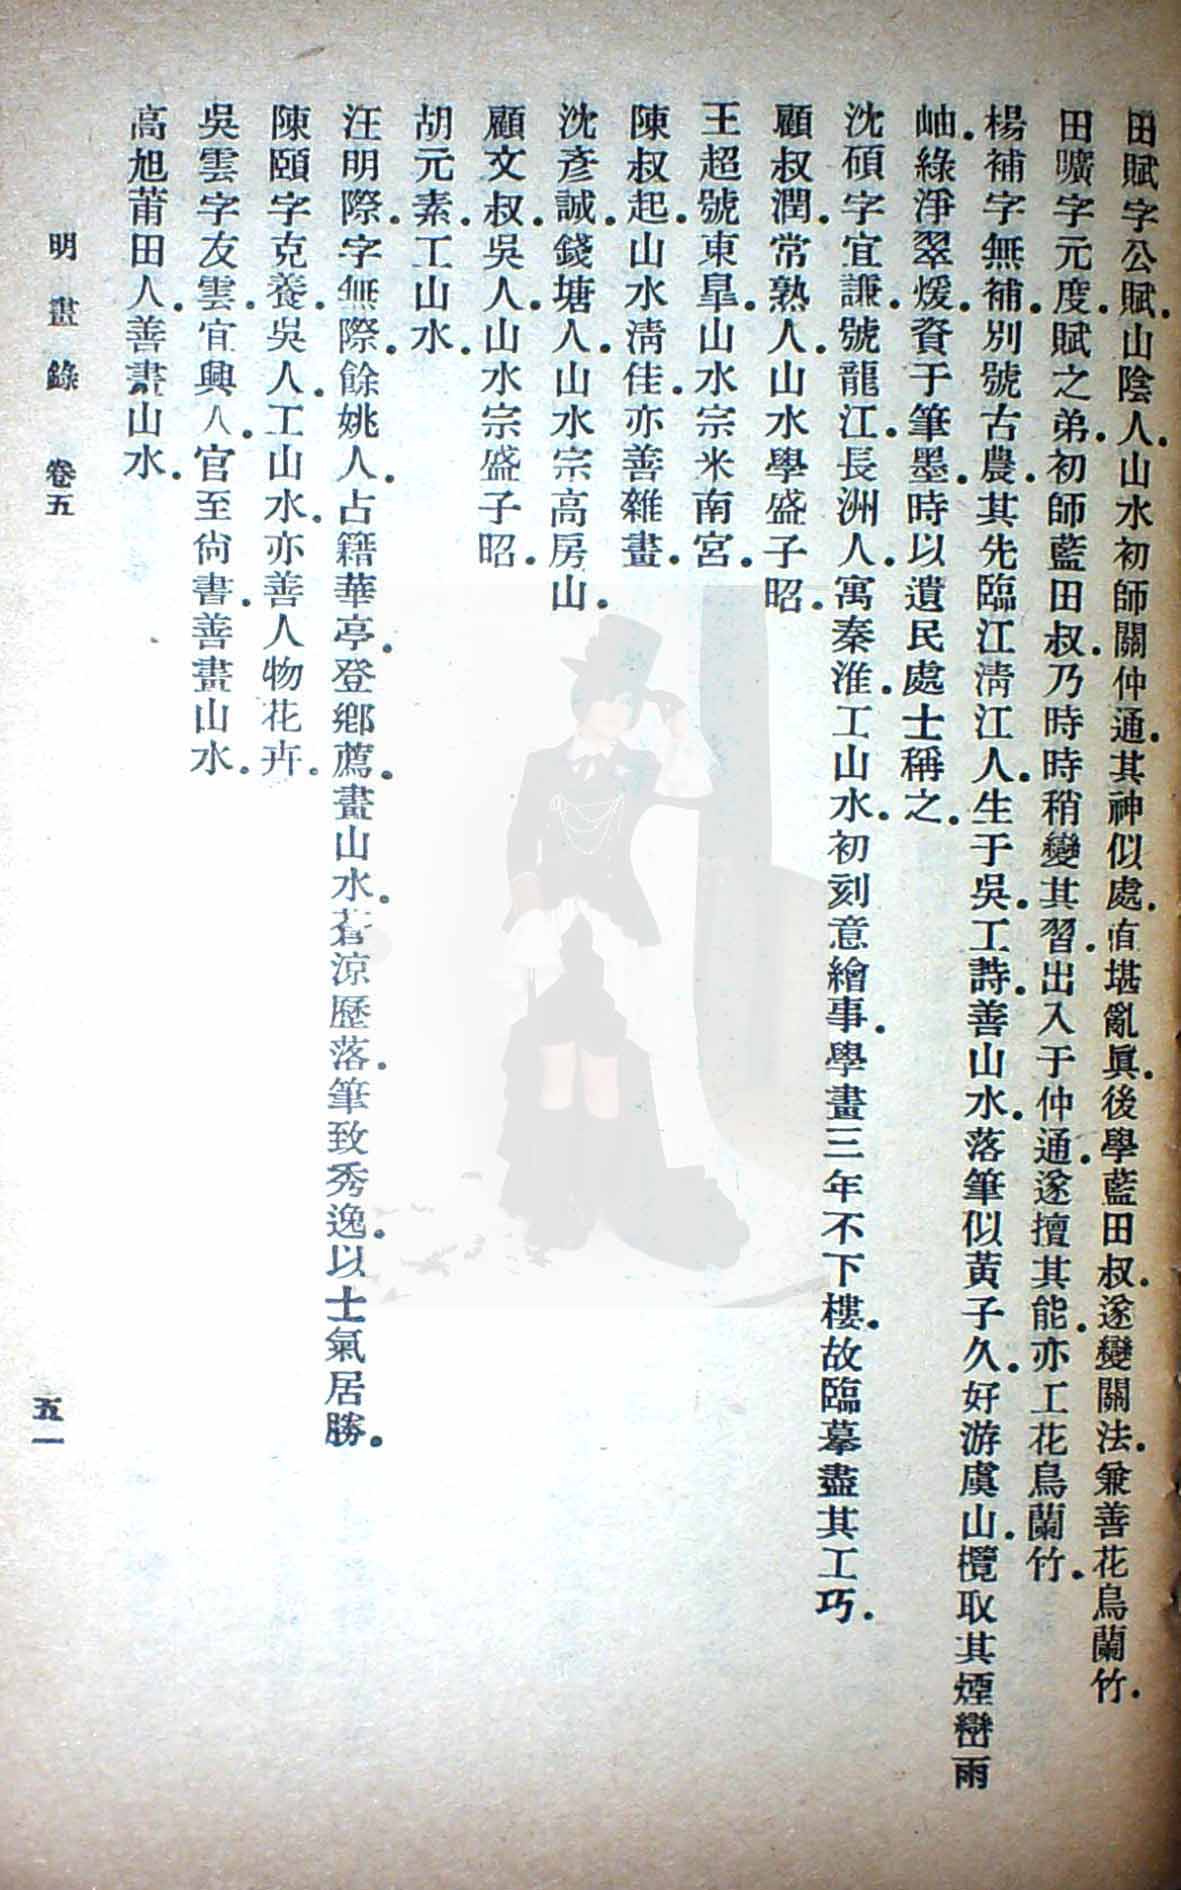 田賦字公賦.山陰人.山水初師關仲通.其神似處.直堪亂眞.後學藍田叔.遂變關法.兼善花鳥蘭竹.
田曠字元度.賦之弟.初師藍田叔.乃時時稍變其習.出入于仲通.遂擅其能.亦工花鳥蘭竹.
楊補字無補.別號古農.其先臨江淸江人.生于吳.工詩.善山水.落筆似黃子久.好游虞山.攬取其煙巒雨
岫.綠淨翠煖.資于筆墨.時以遺民處士稱之.
沈碩字宜謙.號龍江.長洲人.寓秦淮.工山水.初刻意繪事.學畫三年不下樓.故臨摹盡其工巧.
顧叔潤.常熟人.山水學盛子昭.
王超號東臯.山水宗米南宮.
陳叔起.山水淸佳.亦善雜畫.
沈彥誠.錢塘人.山水宗高房山.
顧文叔.吳人.山水宗盛子昭.
胡元素.工山水.
汪明際.字無際.餘姚人.占籍華亭.登鄕薦.畫山水.蒼涼歷落.筆致秀逸.以士氣居勝.
陳頤字克養.吳人.工山水.亦善人物花卉.
吳雲字友雲.宜興人.官至尙書.善畫山水.
高旭莆田人.善畫山水.
明畫錄 卷五
五一